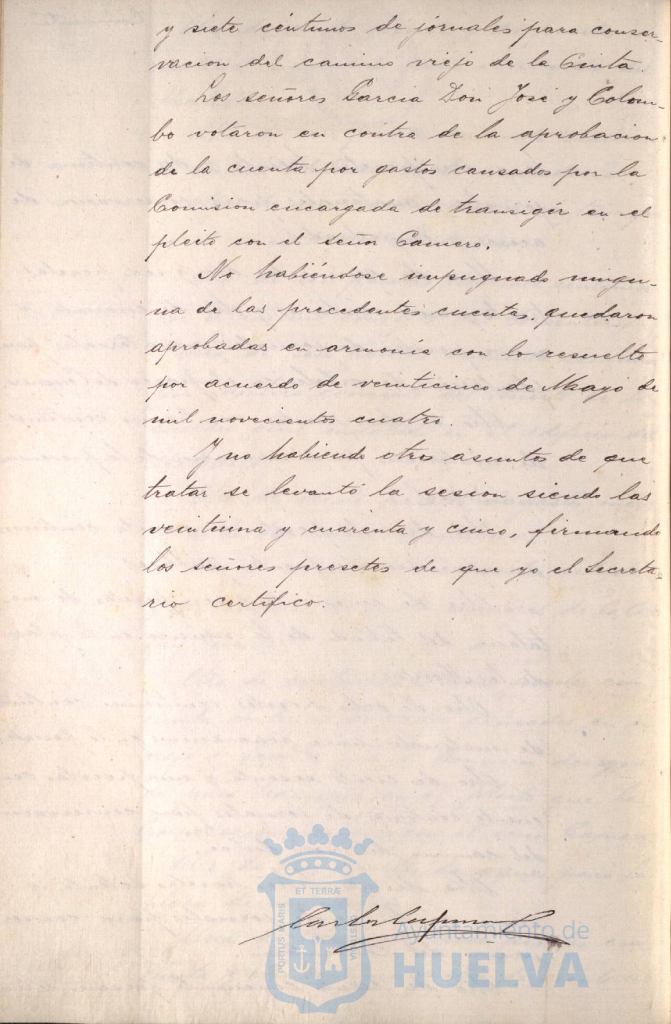 y siete céntimos de jornales para conser-
vacion del camino viejo de la Cinta.
Los señores Garcia Don José y Colom-
bo votaron en contra de la aprobacion
de la cuenta por gastos causados por la
Comision encargada de transigir en el
pleito con el señor Camero.
No habiéndose impugnado ningu-
na de las precedentes cuentas, quedaron
aprobadas en armonía con lo resuelto
por acuerdo de veinticinco de Mayo de
mil novecientos cuatro.
Y no habiendo otros asuntos de que
tratar se levantó la sesion siendo las
veintiuna y cuarenta y cinco, firmando
los señores presetes de que yo el Secreta-
rio certifico.
ET TERRÆ
PORTUS MARIS
CUSTODIA
Ayuntamiento de
HUELVA